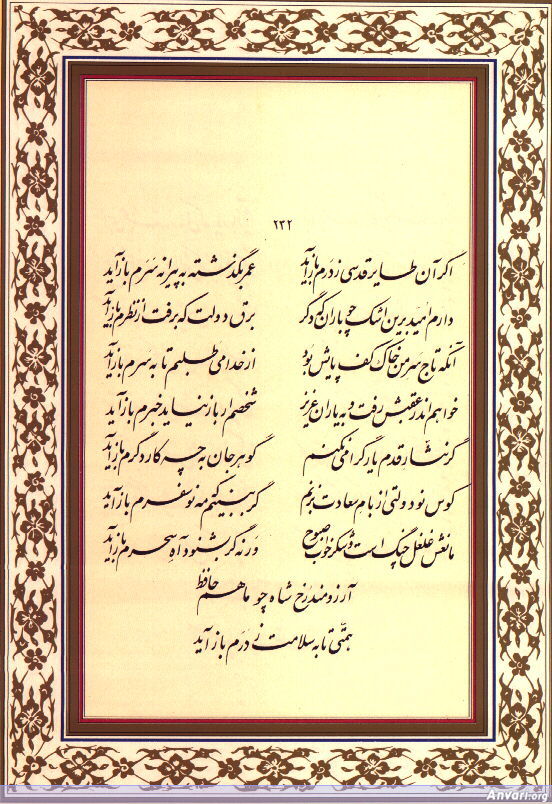 ۲۳۲
اگر آن طایر قدسی ز درم بازآید عمر بگذشته به پیرانه سرم بازآید
دارم امید برین اشک چو باران که دگر برق دولت که برفت از نظرم بازآید
آنکه تاج سر من خاک کف پایش بود از خدا می طلبم تا به سرم بازآید
خواهم اندر عقبش رفت و به یاران عزیز شخصم ار بازنیاید خبرم بازآید
گر نثار قدم یار گرامی نکنم گوهر جان به چه کار دگرم بازآید
کوس نو دولتی از بام سعادت بزنم گر ببینم که مه نوسفرم بازآید
مانعش غلغل چنگ است و شکر خواب صبوح ورنه گر بشنود آه سحرم بازآید
آرزومند رخ شاه چو ماهم حافظ
همتی تا به سلامت ز درم بازآید
Anvari.org